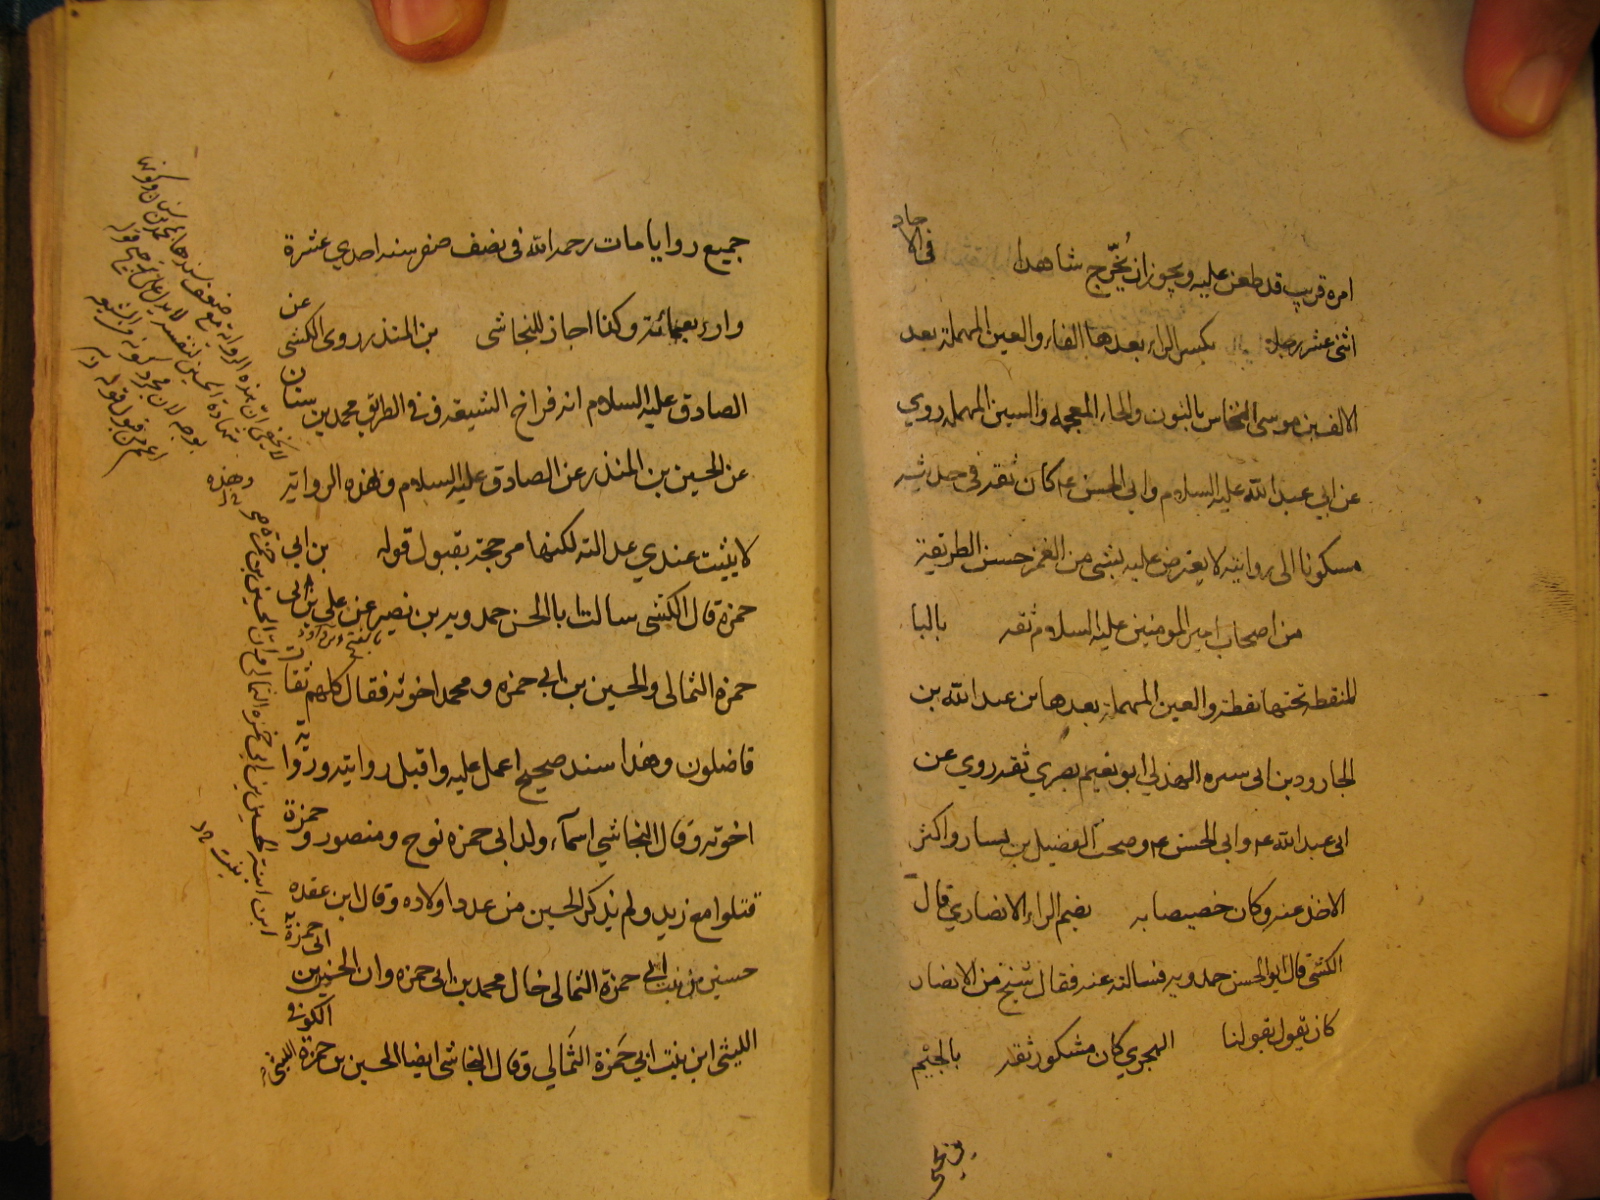 امره قريب قد طعن عليه ويجوز ان يُخرّج شاهدا في الاحاد
اثنى عشر رجلا بكسر الراء بعدها الفاء والعين المهملة بعد
الالف بن موسى النخاس بالنون والخاء المعجمه والسين المهمله روي
عن ابي عبد الله عليه السلام وابي الحسن ع كان ثقه في حديثه
مسكونا الى روايته لا يعترض عليه بشئ من الغمز حسن الطريقة
من اصحاب امير المومنين عليه السلام ثقه بالبا
المنقطه تحتها نقطة والعين المهملة بعدها بن عبد الله بن
الجارود بن ابى سبره الهذلي ابو نعيم بصري ثقه روي عن
ابى عبد الله ع وابى الحسن ع وصحب الفضيل بن يسار واكثر
الاخذ عنه وكان خصيصا به بضم الراء الانصاري قال
الكشى قال ابو الحسن حمدويه فسالته عنه فقال شيخ من الانصار
كان يقول بقولنا الهجري كان مشكور ثقه بالجيم
جميع روايا مات رحمه الله فى نصف صفر سنه احدي عشرة
واربعمائة وكنا اجاز للنجاشى بن المنذر روى الكشى عن
الصادق عليه السلام انه فراخ الشيعه وفى الطريق محمد بن سنان
عن الحسين بن المنذر عن الصادق عليه السلام وهذه الرواية
لا يثبت عندي عدالته لكنها مرجحة بقبول قوله بن ابي
حمزة قال الكشى سالت ابا الحسن حمدويه بن نصير عن على بن ابى
حمزة الثمالى والحسين بن ابي حمزه ومحمد اخويه فقال كلهم ثقات
فاضلون وهذا سند صحيح اعمل عليه واقبل روايته ورواية
اخويه وقال النجاشي اسمآء ولد ابى حمزه نوح ومنصور وحمزة
قتلوا مع زيد ولم يذكر الحسين من عدد اولاده وقال ابن عقده
حسين بن بنت ابي حمزة الثمالى خال محمد بن ابى حمزه وان الحسين بن ابى حمزة
الليثى ابن بنت ابي حَمزة الثمَالي وقال النجاشى ايضا الحسين بن حمزة الليثي الكوفى
لا يخفى ان هذه الرواية مع ضعف سندها
ابن ابنة الحسين بن ابى حمزه الثمالى وان الحسين بن حمزة